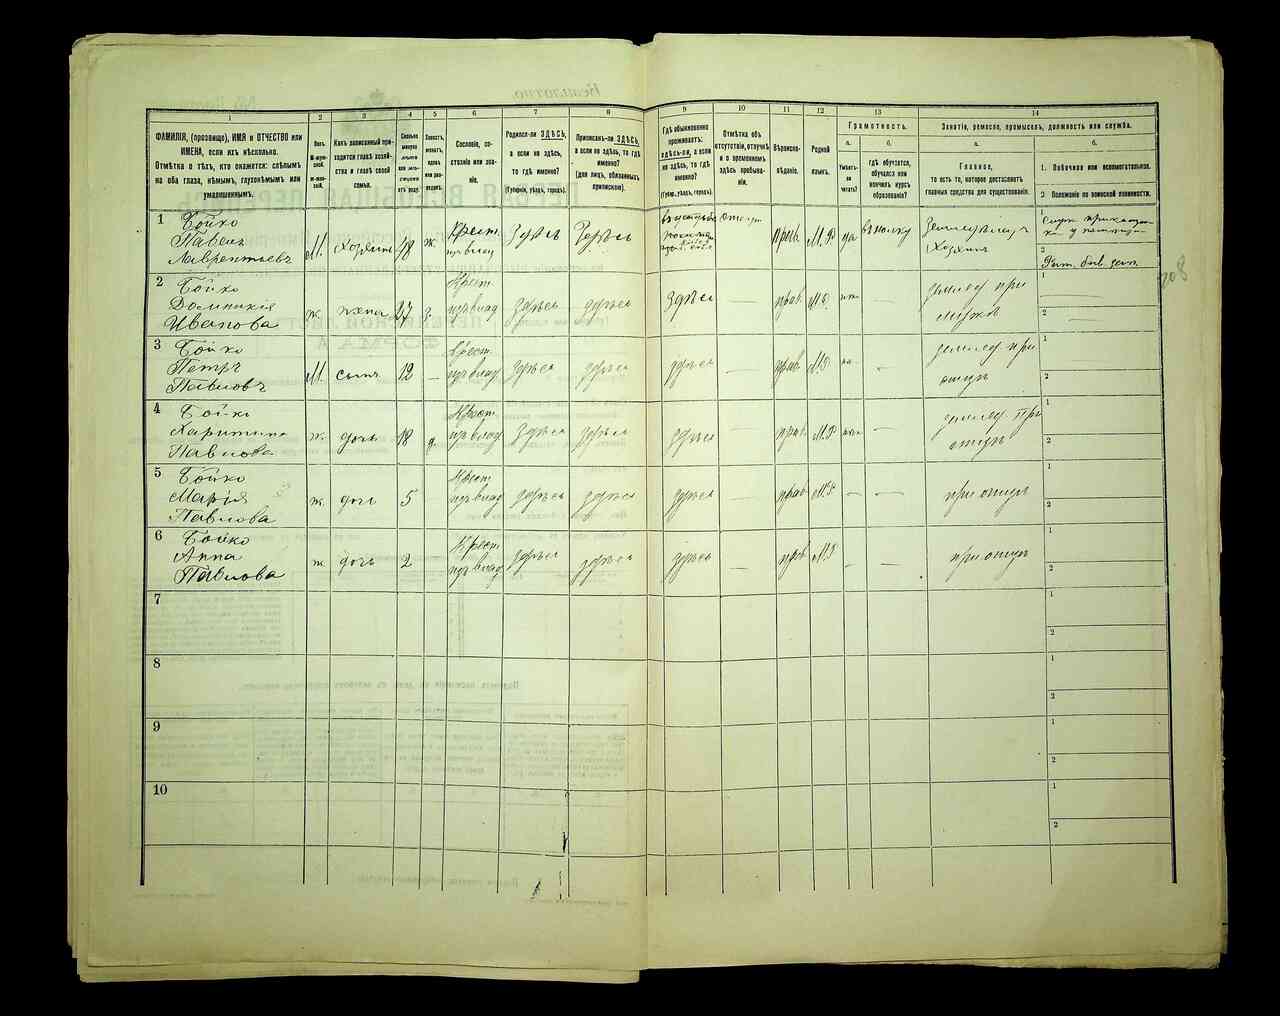 1
ФАМИЛІЯ, (прозвище), ИМЯ и ОТЧЕСТВО или
ИМЕНА, если ихъ нѣсколько.
Отмѣтка о тѣхъ, кто окажется: слѣпымъ
на оба глаза, нѣмымъ, глухонѣмымъ или
умалишеннымъ.
2
Полъ
М-муж-
ской.
Ж-жен-
скій.
3
Какъ записанный при-
ходится главѣ хозяй-
ства и главѣ своей
семьи.
4
Сколько
минуло
лѣтъ
или мѣ-
сяцевъ
отъ роду.
5
Холостъ,
женатъ,
вдовъ
или раз-
веденъ.
6
Сословіе, со-
стояніе или зва-
ніе.
7
Родился-ли ЗДѢСЬ,
а если не здѣсь,
то гдѣ именно?
(Губернія, уѣздъ, городъ).
8
Приписанъ-ли ЗДѢСЬ,
а если не здѣсь, то гдѣ
именно?
(для лицъ, обязанныхъ
припискою).
9
Гдѣ обыкновенно
проживаетъ:
здѣсь-ли, а если
не здѣсь, то гдѣ
именно?
(Губ., уѣздъ, городъ).
10
Отмѣтка объ
отсутствіи, отлучкѣ
и о временномъ
здѣсь пребыва-
ніи.
11
Вѣроиспо-
вѣданіе.
12
Родной
языкъ.
13
Грамотность.
а.
Умѣетъ-
ли
читать?
б.
гдѣ обучается,
обучался или
кончилъ курсъ
образованія?
14
Занятіе, ремесло, промыселъ, должность или служба.
а.
Главное,
то есть то, которое доставляетъ
главныя средства для существованія.
б.
1. Побочное или вспомогательное.
2 Положеніе по воинской повинности.
1
Бойко
Павелъ
Лаврентьевъ
М.
Хозяинъ
48
ж.
Крест.
Здѣсь
Здѣсь
отсут
прав.
М.Р
да
въ полку
Хозяинъ
1
2
2
Бойко
Домникія
Ивановa
ж.
жена
47
з.
Крест.
здѣсь
здѣсь
Здѣсь
—
прав.
М.Р
—
1
2
3
Бойко
Петръ
Павловъ
М.
сынъ
12
—
Крест.
здѣсь
здѣсь
здѣсь
—
прав.
М.Р
—
1
2
4
Бойко
Харитина
Павлова
ж.
дочь
18
д.
Крест.
здѣсь
здѣсь
здѣсь
—
прав.
М.Р
—
1
2
5
Бойко
Марія
Павлова
ж.
дочь
5
Крест.
здѣсь
здѣсь
здѣсь
—
прав.
М.Р
—
—
при отцѣ
1
2
6
Бойко
Анна
Павлова
ж
дочь
2
Крест.
здѣсь
здѣсь
здѣсь
—
прав.
М.Р
—
—
при отцѣ
1
2
7
1
2
8
1
2
9
1
2
10
1
2
208